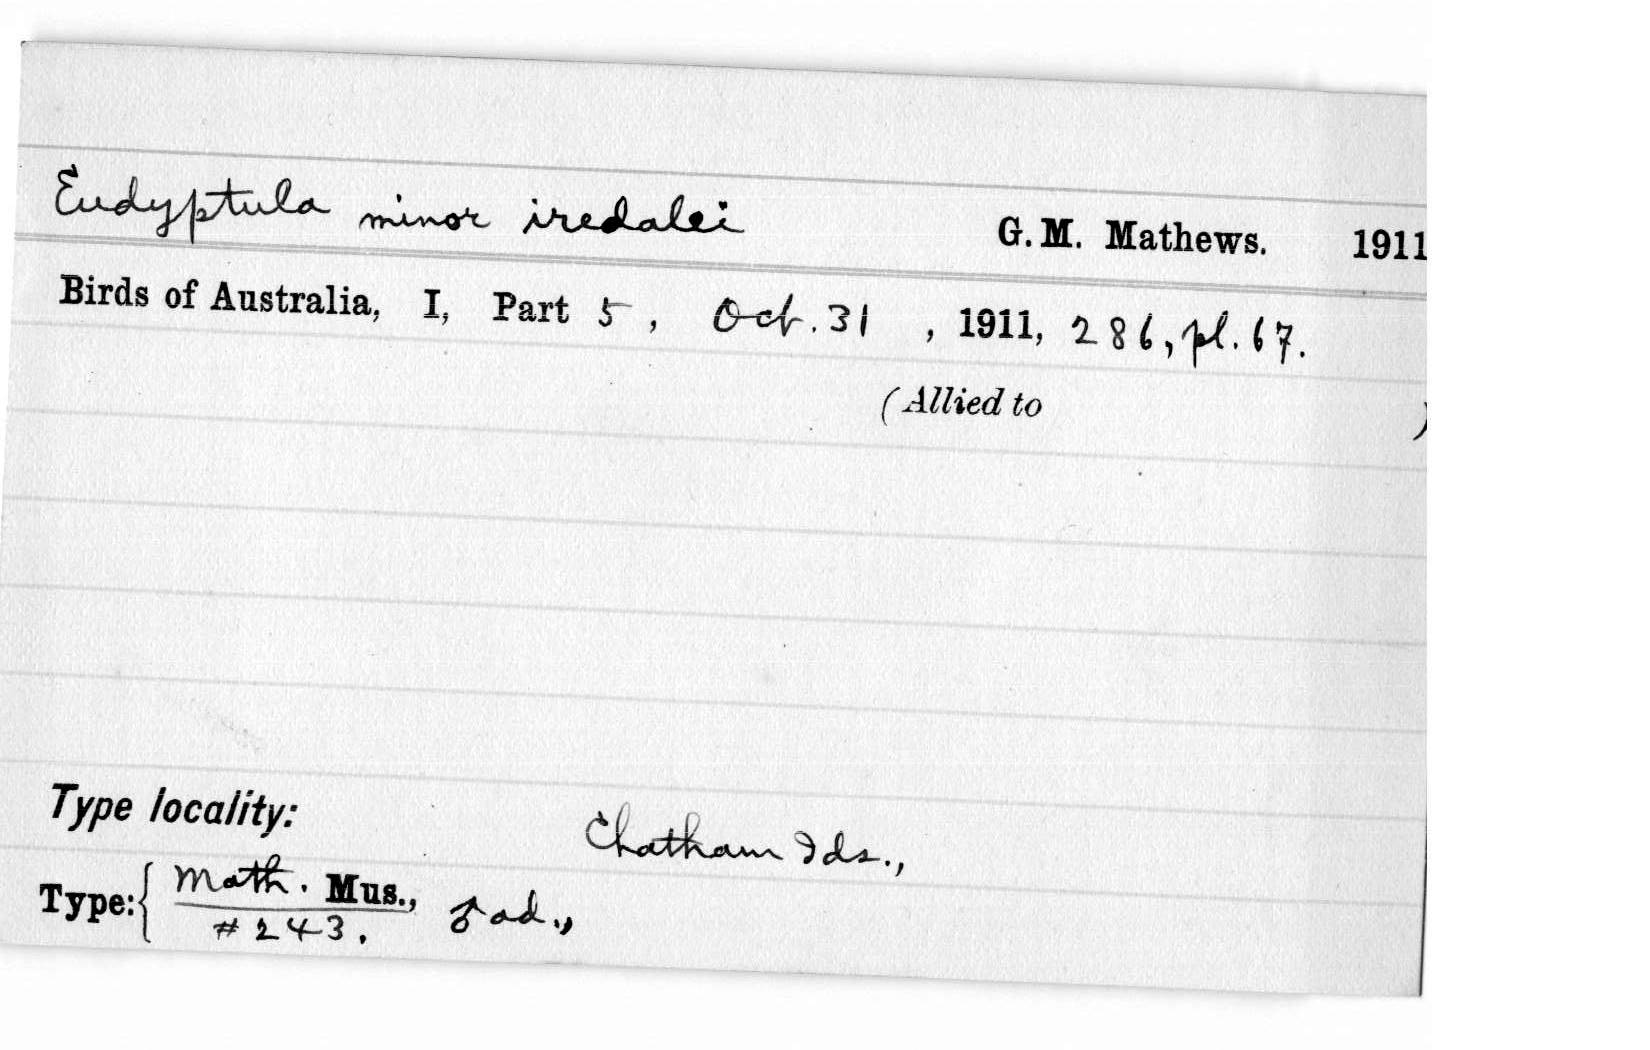 Eudyptula minor iredalei G. M. Mathews. 1911
Birds of Australia, I, Part 5, Oct. 31, 1911, 286, pl. 67.
(Allied to )
Type locality: Chatham Ids.,
Type: { Math. Mus., ♂ ad.,
#243.